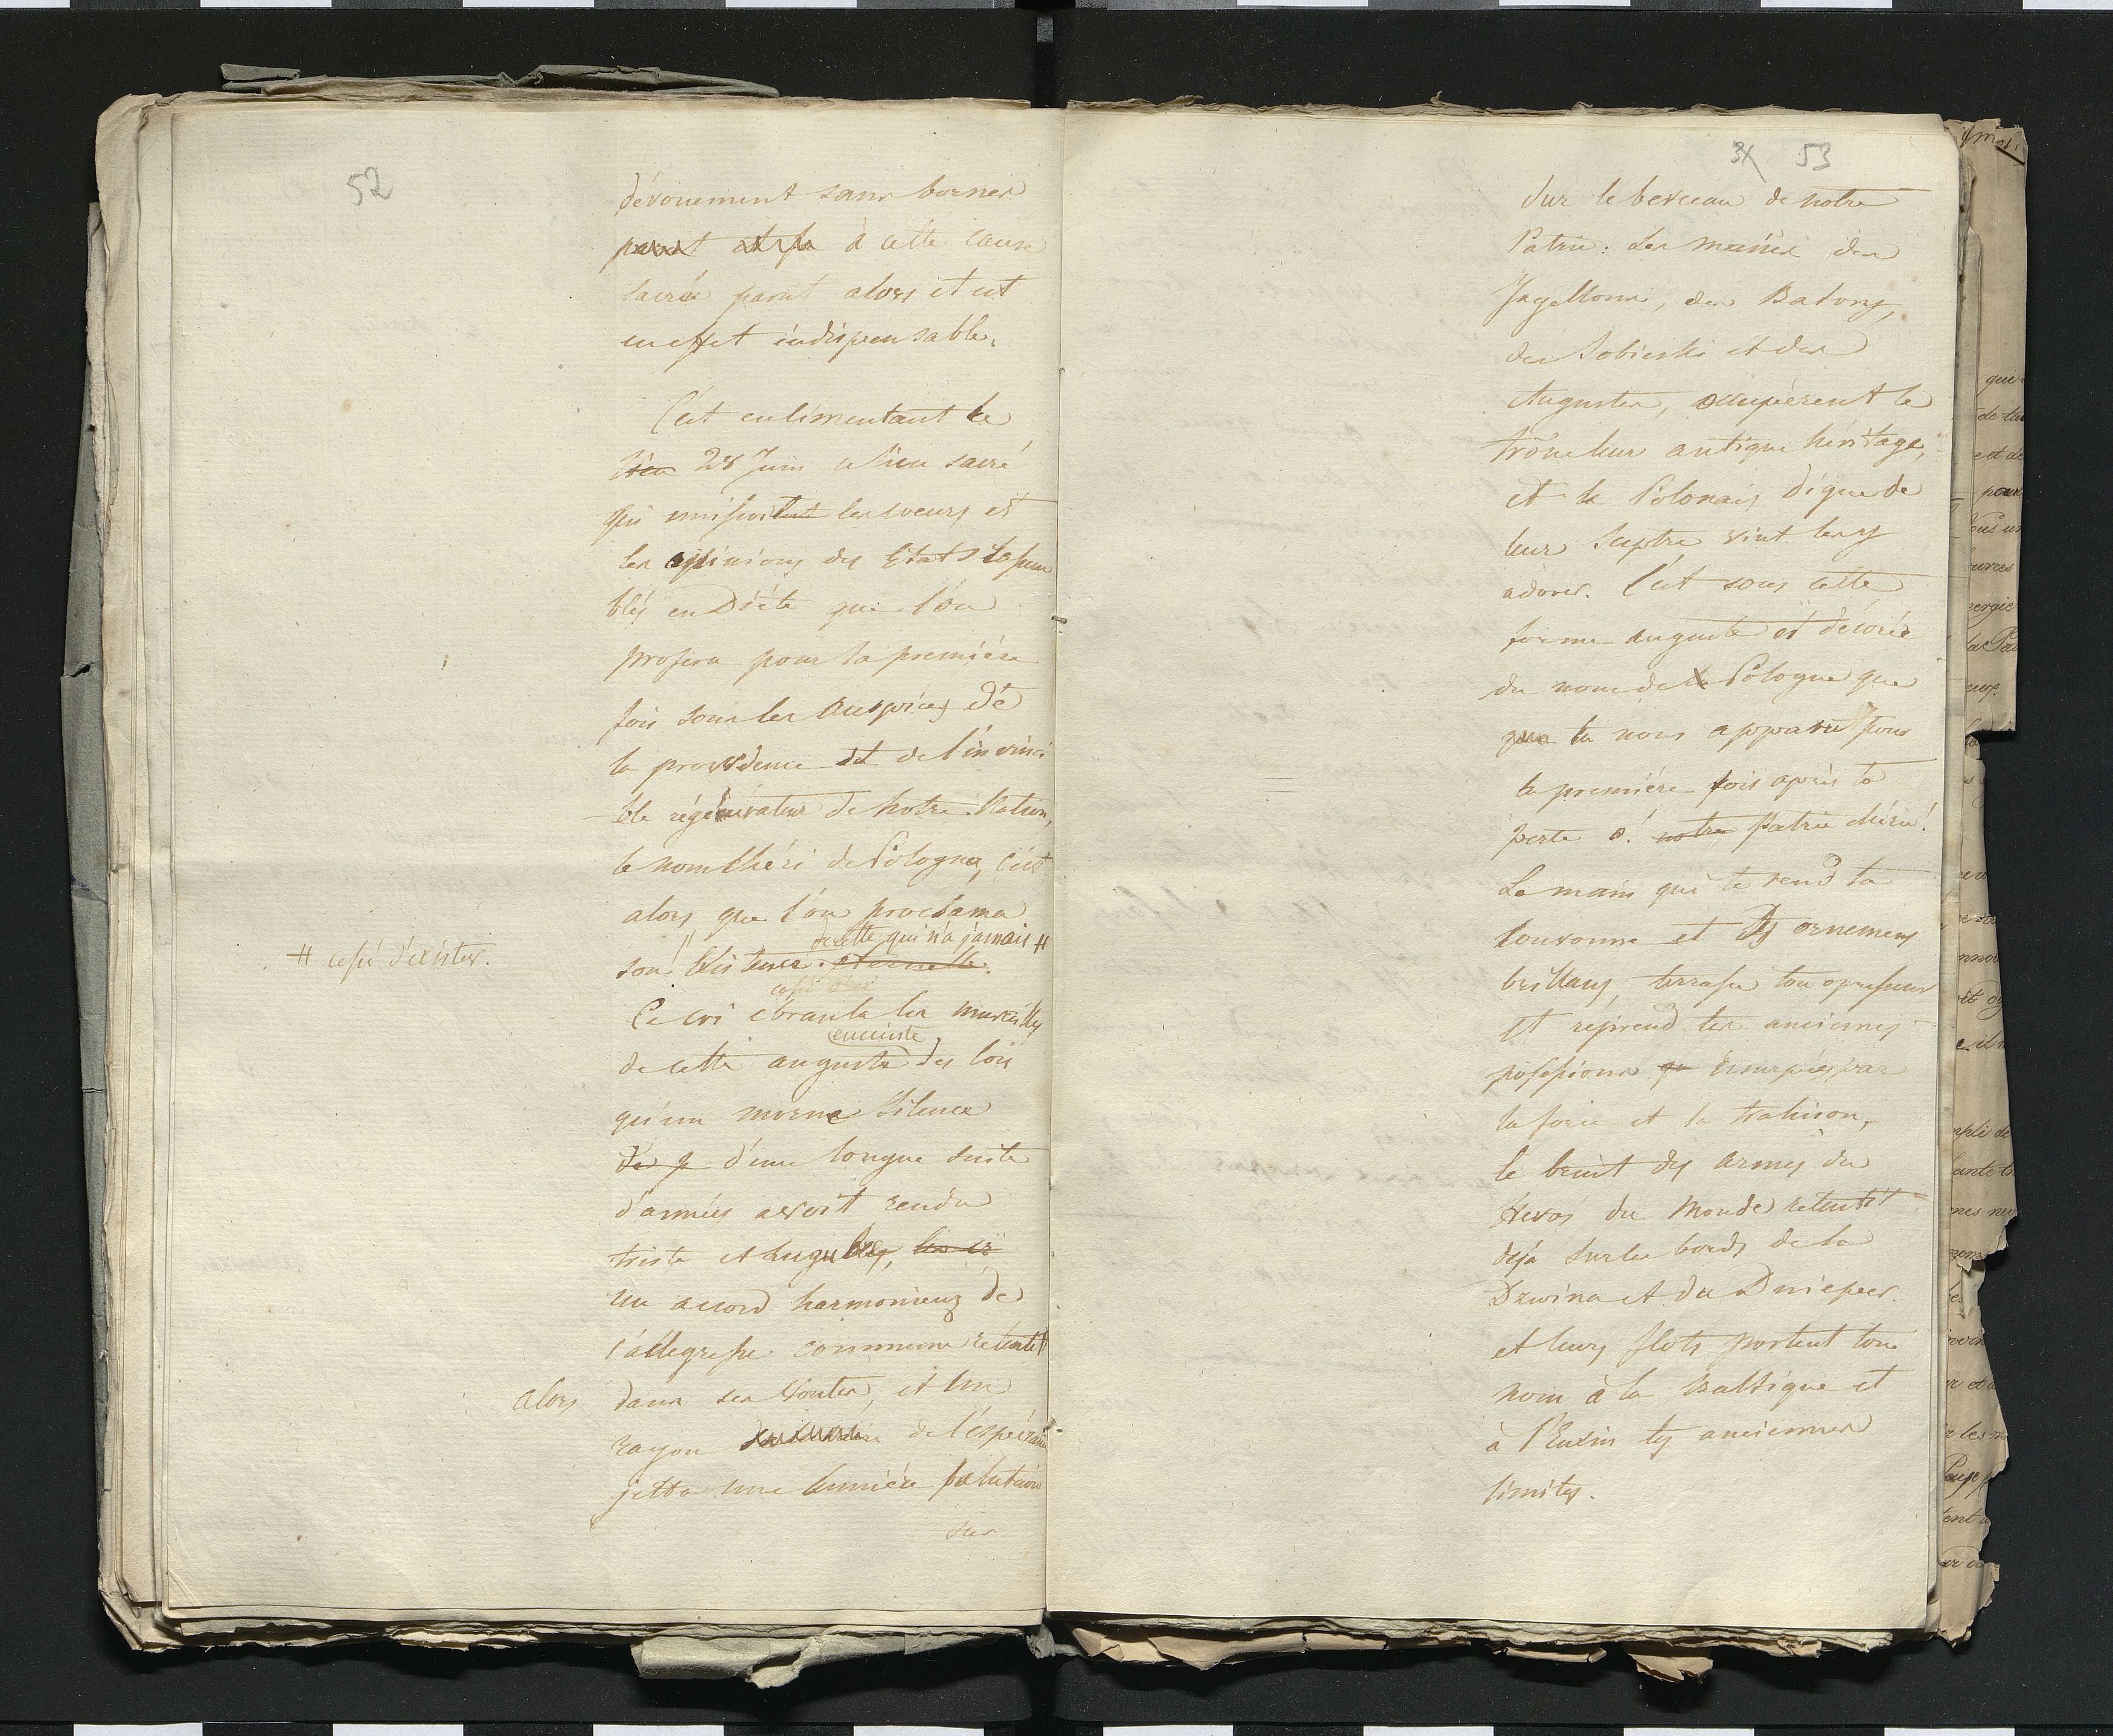 52
dévouement sans bornes
à cette cause
sacrée parut alors et est
en effet indispensable.
C'est en cimentant le
lien 28 Juin ce lien sacré
qui unissoit les voeux et
les opinions des Etats assem
blés en Diéte que l'on
profera pour la première
fois sous les auspices de
la providence et de l'invinci
ble régénérateur de notre Nation,
le nom chéri de Pologne, c'est
alors que l'on proclama
decette qui n'a jamais #
son Existence eternelle.
# cessé d'éxister.
Ce cri ebranla les murailles
enceinte
de cette auguste des lois
qu'un morne silence
d'une longue suite
d'années avoit rendu
triste et lugubre,
un accord harmonieux de
l'allegresse commune retentit
alors dans ses voutes, et un
rayon de l'éspérance
jetta une lumière salutaire
sur
31 53
sur le berceau de notre
Patrie. Les manes des
Jagellons, des Batory,
des Sobieski et des
Augustes, occupérent le
trône leur antique héritage,
et le Polonais digne de
leur sceptre vint les y
adorer. C'est sous cette
forme auguste et décorée
du nom de la Pologne que
que tu nous apparu pour
la première fois après ta
perte o! notre Patrie chérie!
La main qui te rend ta
couronne et tes ornemens
brillans, terrasse ton opresseur
et reprend tes anciennes
possessions usurpées par
la force et la trahison,
le bruit des armes du
Heros du Monde retentit
déjà sur les bords de la
Dzwina et du Dnieper
et leurs flots portent ton
nom à la Baltique et
à l'Euxin tes anciennes
limites.